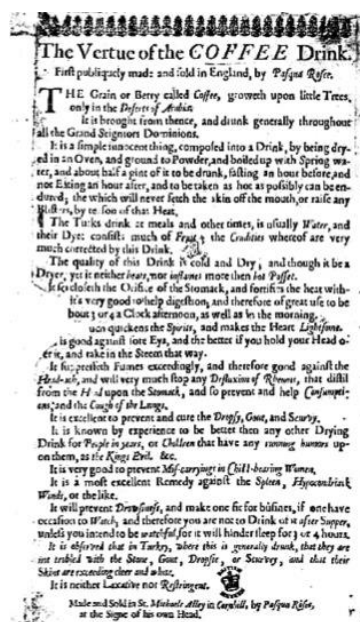 The Vertue of the COFFEE Drink.
First publiquely made and sold in England, by Pasqua Rosee.
THE Grain or Berry called Coffee, groweth upon little Trees,
only in the Deserts of Arabia.
It is brought from thence, and drunk generally throughout
all the Grand Seigniors Dominions.
It is a simple innocent thing, composed into a Drink, by being dry-
ed in an Oven, and ground to Powder, and boiled up with Spring wa-
ter, and about half a pint of it to be drunk, fasting an hour before, and
not Eating an hour after, and to be taken as hot as possibly can be en-
dured; the which will never fetch the skin off the mouth, or raise any
Blisters, by reason of that Heat.
The Turks drink at meals and other times, is usually Water, and
their Dyet consists much of Fruit, the Crudities whereof are very
much corrected by this Drink.
The quality of this Drink is cold and Dry; and though it be a
Dryer, yet it neither heats, nor inflames more then hot Posset.
It so closeth the Orifice of the Stomack, and fortifies the heat with-
it's very good to help digestion, and therefore of great use to be
bout 3 or 4 a Clock afternoon, as well as in the morning.
quickens the Spirits, and makes the Heart Lightsome.
is good against sore Eys, and the better if you hold your Head o-
er it, and take in the Steem that way.
It suppresseth Fumes exceedingly, and therefore good against the
Head-ach, and will very much stop any Defluxion of Rheumes, that distil
from the Head upon the Stomack, and so prevent and help Consumpti-
ons; and the Cough of the Lungs.
It is excellent to prevent and cure the Dropsy, Gout, and Scurvy.
It is known by experience to be better then any other Drying
Drink for People in years, or Children that have any running humors up-
on them, as the Kings Evil. &c.
It is very good to prevent Mis-carryings in Child-bearing Women.
It is a most excellent Remedy against the Spleen, Hypocondriack
Winds, or the like.
It will prevent Drowsiness, and make one fit for busines, if one have
occasion to Watch, and therefore you are not to Drink of it after Supper,
unless you intend to be watchful, for it will hinder sleep for 3 or 4 hours.
It is observed that in Turkey, where this is generally drunk, that they are
not trobled with the Stone, Gout, Dropsie, or Scurvey, and that their
Skins are exceeding cleer and white.
It is neither Laxative nor Restringent.
Made and Sold in St. Michaels Alley in Cornhill, by Pasqua Rosee,
at the Signe of his own Head.